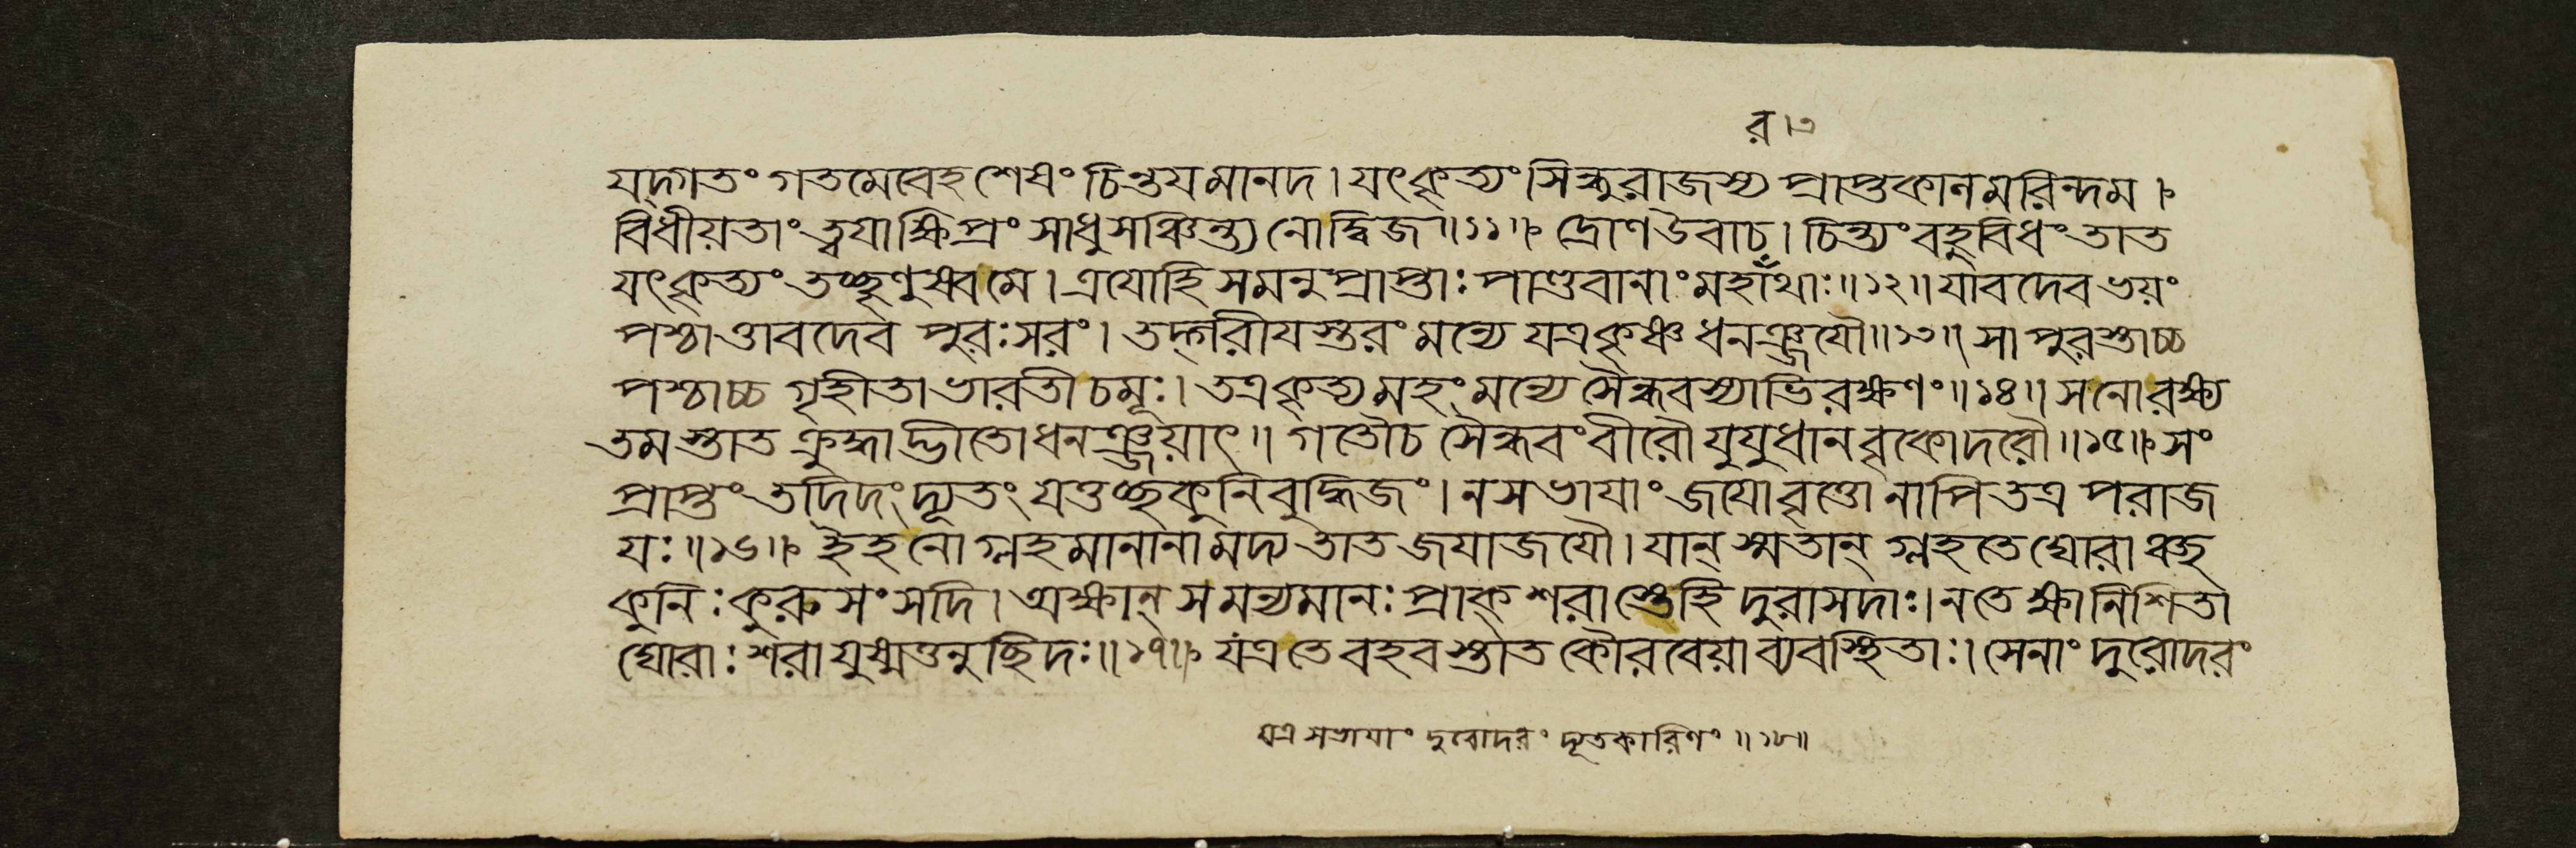 র।৩
যদ্গতং গতমেবেহ শেষং চিন্তয মানদ। যৎকৃত্যং সিন্ধুরাজস্য প্রাপ্তকানমরিন্দম।
বিধীয়তাং ত্বযাক্ষিপ্রং সাধুসঞ্চিন্ত্য নোদ্বিজ॥১১॥ দ্রোণ উবাচ। চিন্ত্যং বহুবিধং তাত
যৎকৃত্যং তচ্ছৃণুষ্বমে। ত্রযোহি সমনুপ্রাপ্তাঃ পাণ্ডবানাং মহারথাঃ॥১২॥ যাবদেব ভয়ং
পশ্চাত্তাবদেব পুরঃসরং। তদ্গরীযস্তরং মন্যে যত্র কৃষ্ণ ধনঞ্জযৌ॥১৩॥ সা পুরস্তাচ্চ
পশ্চাচ্চ গৃহীতা ভারতী চমূঃ। তত্র কৃত্যমহং মন্যে সৈন্ধবস্যাভিরক্ষণং॥১৪॥ সনোরক্ষ্য
তমস্তাত ক্রুদ্ধাদ্ভীতো ধনঞ্জয়াৎ॥ গতৌচ সৈন্ধবং বীরৌ যুযুধান বৃকোদরৌ॥১৫॥ সং
প্রাপ্তং তদিদং দ্যূতং যত্তচ্ছকুনিবুদ্ধিজং। নসভাযাং জযোবৃত্তো নাপি তত্র পরাজ
যঃ॥১৬॥ ইহ নো গ্লহমানানামদ্য তাত জযাজযৌ। যান্ স্মতান্ গ্লহতে ঘোরাঞ্ছ
কুনিঃ কুরুসংসদি। অক্ষান্ সমন্যমানঃ প্রাক্ শরাস্তেহি দুরাসদাঃ। নতেক্ষা নিশিতা
ঘোরাঃ শরা যুষ্মত্তনুছিদঃ॥১৭॥ যত্র তে বহবস্তাত কৌরবেয়া ব্যবস্থিতাঃ। সেনাং দুরোদরং
যত্র সভাযাং দুরোদরং দ্যূতকারিণং॥১৮॥